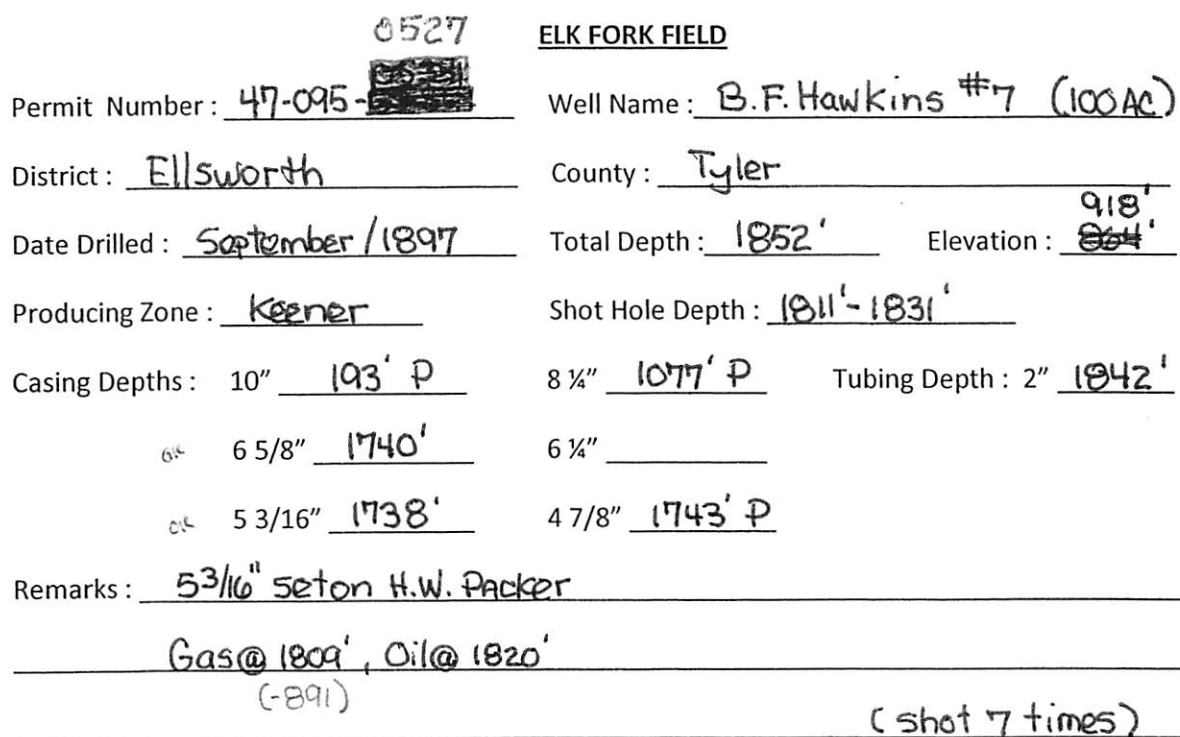 0527
ELK FORK FIELD
Permit Number : 47-095- Well Name : B.F. Hawkins #7 (100 AC)
District : Ellsworth County : Tyler
918'
Date Drilled : September / 1897 Total Depth : 1852' Elevation : 864'
Producing Zone : Keener Shot Hole Depth : 1811'-1831'
Casing Depths : 10" 193' P 8 ¼" 1077' P Tubing Depth : 2" 1842'
6 5/8" 1740' 6 ¼"
5 3/16" 1738' 4 7/8" 1743' P
Remarks : 5 3/16" set on H.W. Packer
Gas @ 1809', Oil @ 1820'
(-891)
(shot 7 times)